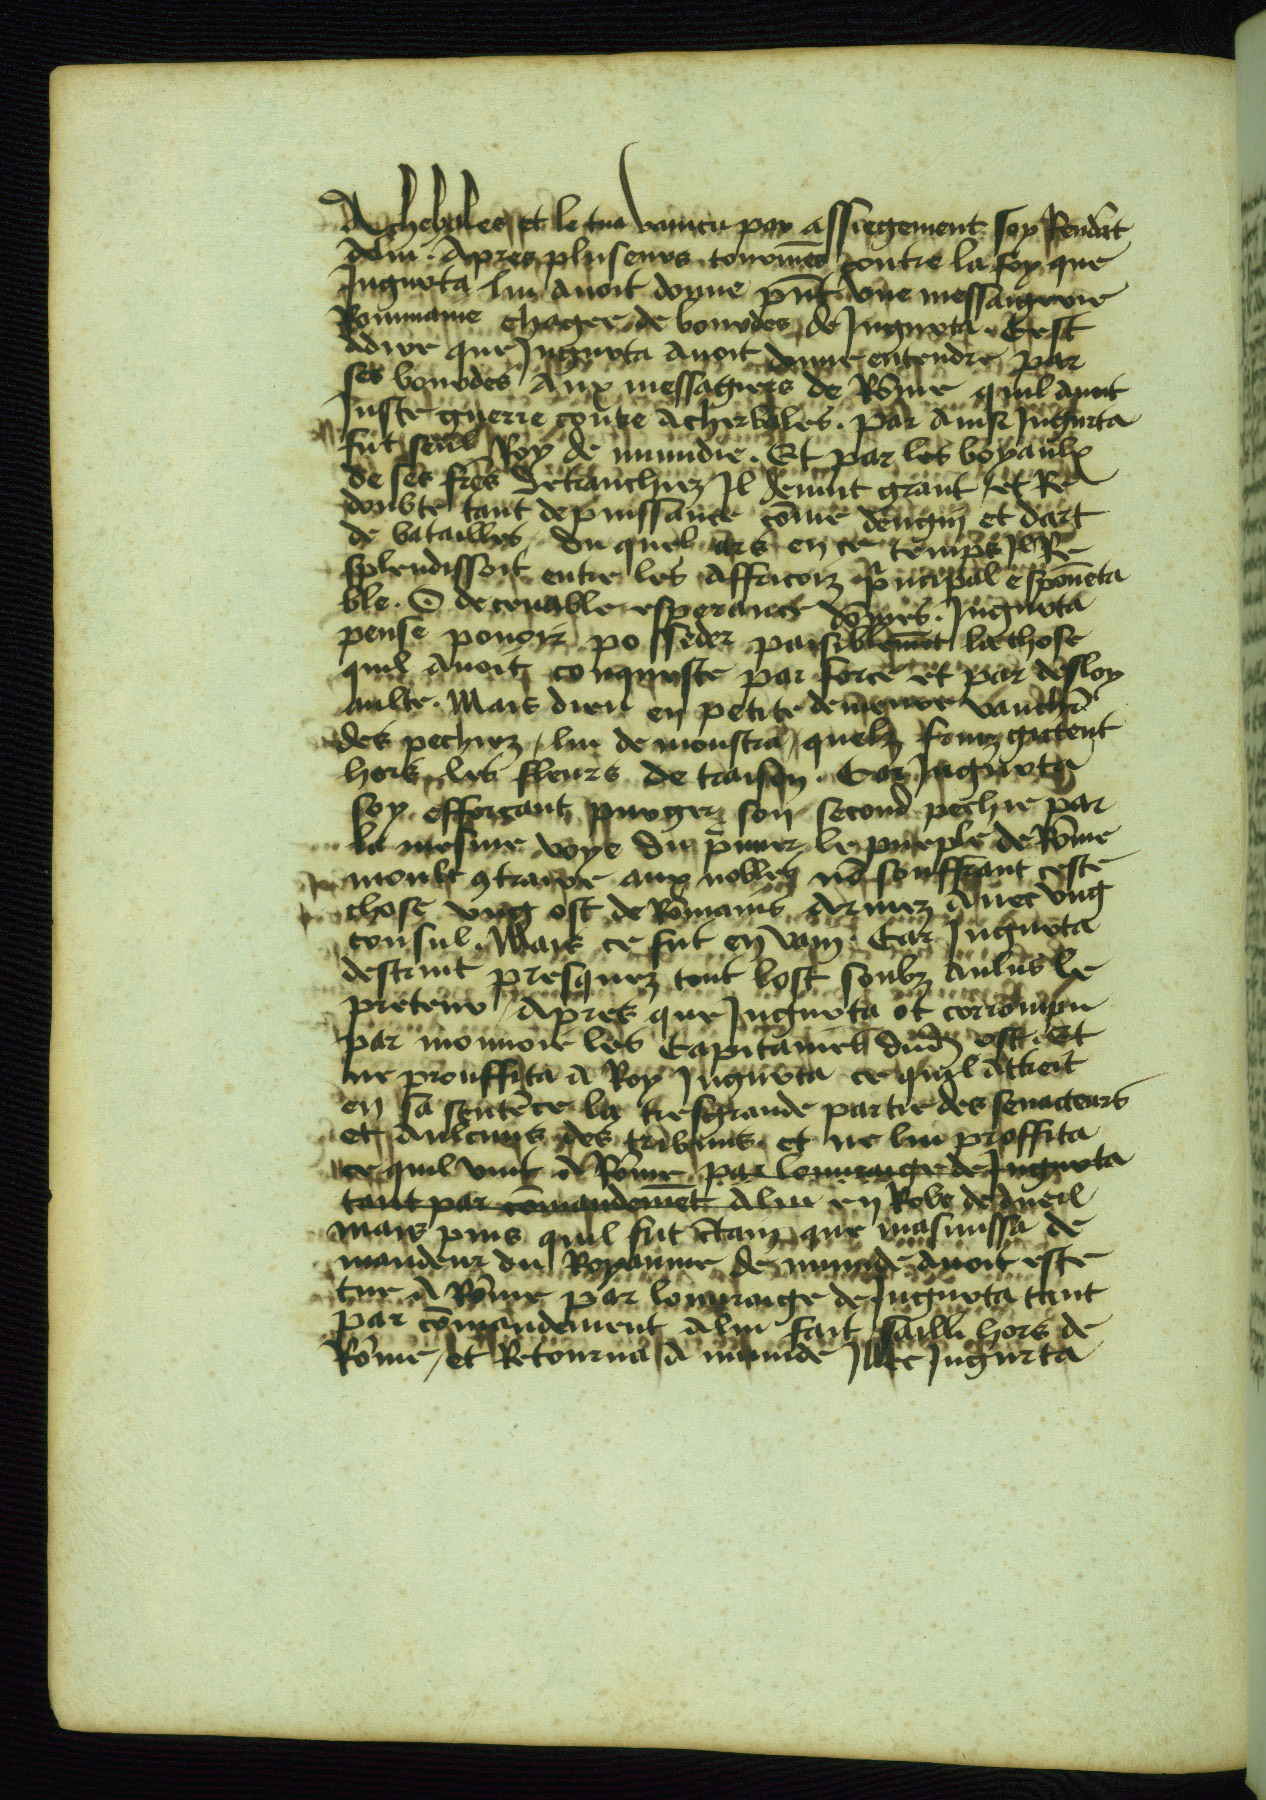 Acherbales et le tua vaincu par assiegement soy Rendāt
a lui. Apres pluseurs tourmēs contre la foy que
Jugurta lui auoit donne pn̄t vne messaigerie
Rommaine chagee de bourdes de Jugurta. Cest
adire que Jugurta auoit donne entendre par
ses bourdes aux messagiers de Rōme quil auoit
Juste guerre cōtre acherbales. par ainsi Jugurta
fut seul Roy de numidie. Et par les boyaulx
de ses frēs detranchiez Il deuint grant et Re
doubte tant de puissance cōme dengin et dart
de batailles du quel ars en ce temps Il Re
splendissoit entre les affricoiz p̄ncipal espouēta
ble. O deceuable esperance dōmes. Jugurta
pense pouoir posseder paisiblemēt la chose
quil auoit conqueste par force et par desloy
aulte. Mais dieu en petite demeure
des pechiez lui demonstra quelz fruiz gictent
hors les fleurs de traison. Car Jugurta
soy efforcant purger son second pechie par
la mesme voye du p̄mier le pueple de Rōme
moult 9traire aux nobles nō souffrant ceste
chose vng ost de Rōmains armez auec vng
consul. Mais ce fut en vain. Car Jugurta
destruit presquez tout lost soubz aulus le
preteur apres que Jugurta ot corrompu
par monnoie les Capitaines dud ost. Et
ne prouffita a Roy Jugurta ce quil attrait
en sa sentēce la tresgrande partie des senateurs
et aulcuns des tribuns et ne lui proffita
ce quil vint a Rōme par louuraige de Jugurta
tant par cōmandemēt a lui en Robe de dueil
Mais puis quil fut c̄tain que masinissa de
mandeur du Royaume de numide auoit este
tue a Rōme par louuraige de Jugurta tant
par cōmandement a lui fait sailli hors de
Rōme, et Retourna a numide Illec Jugurta